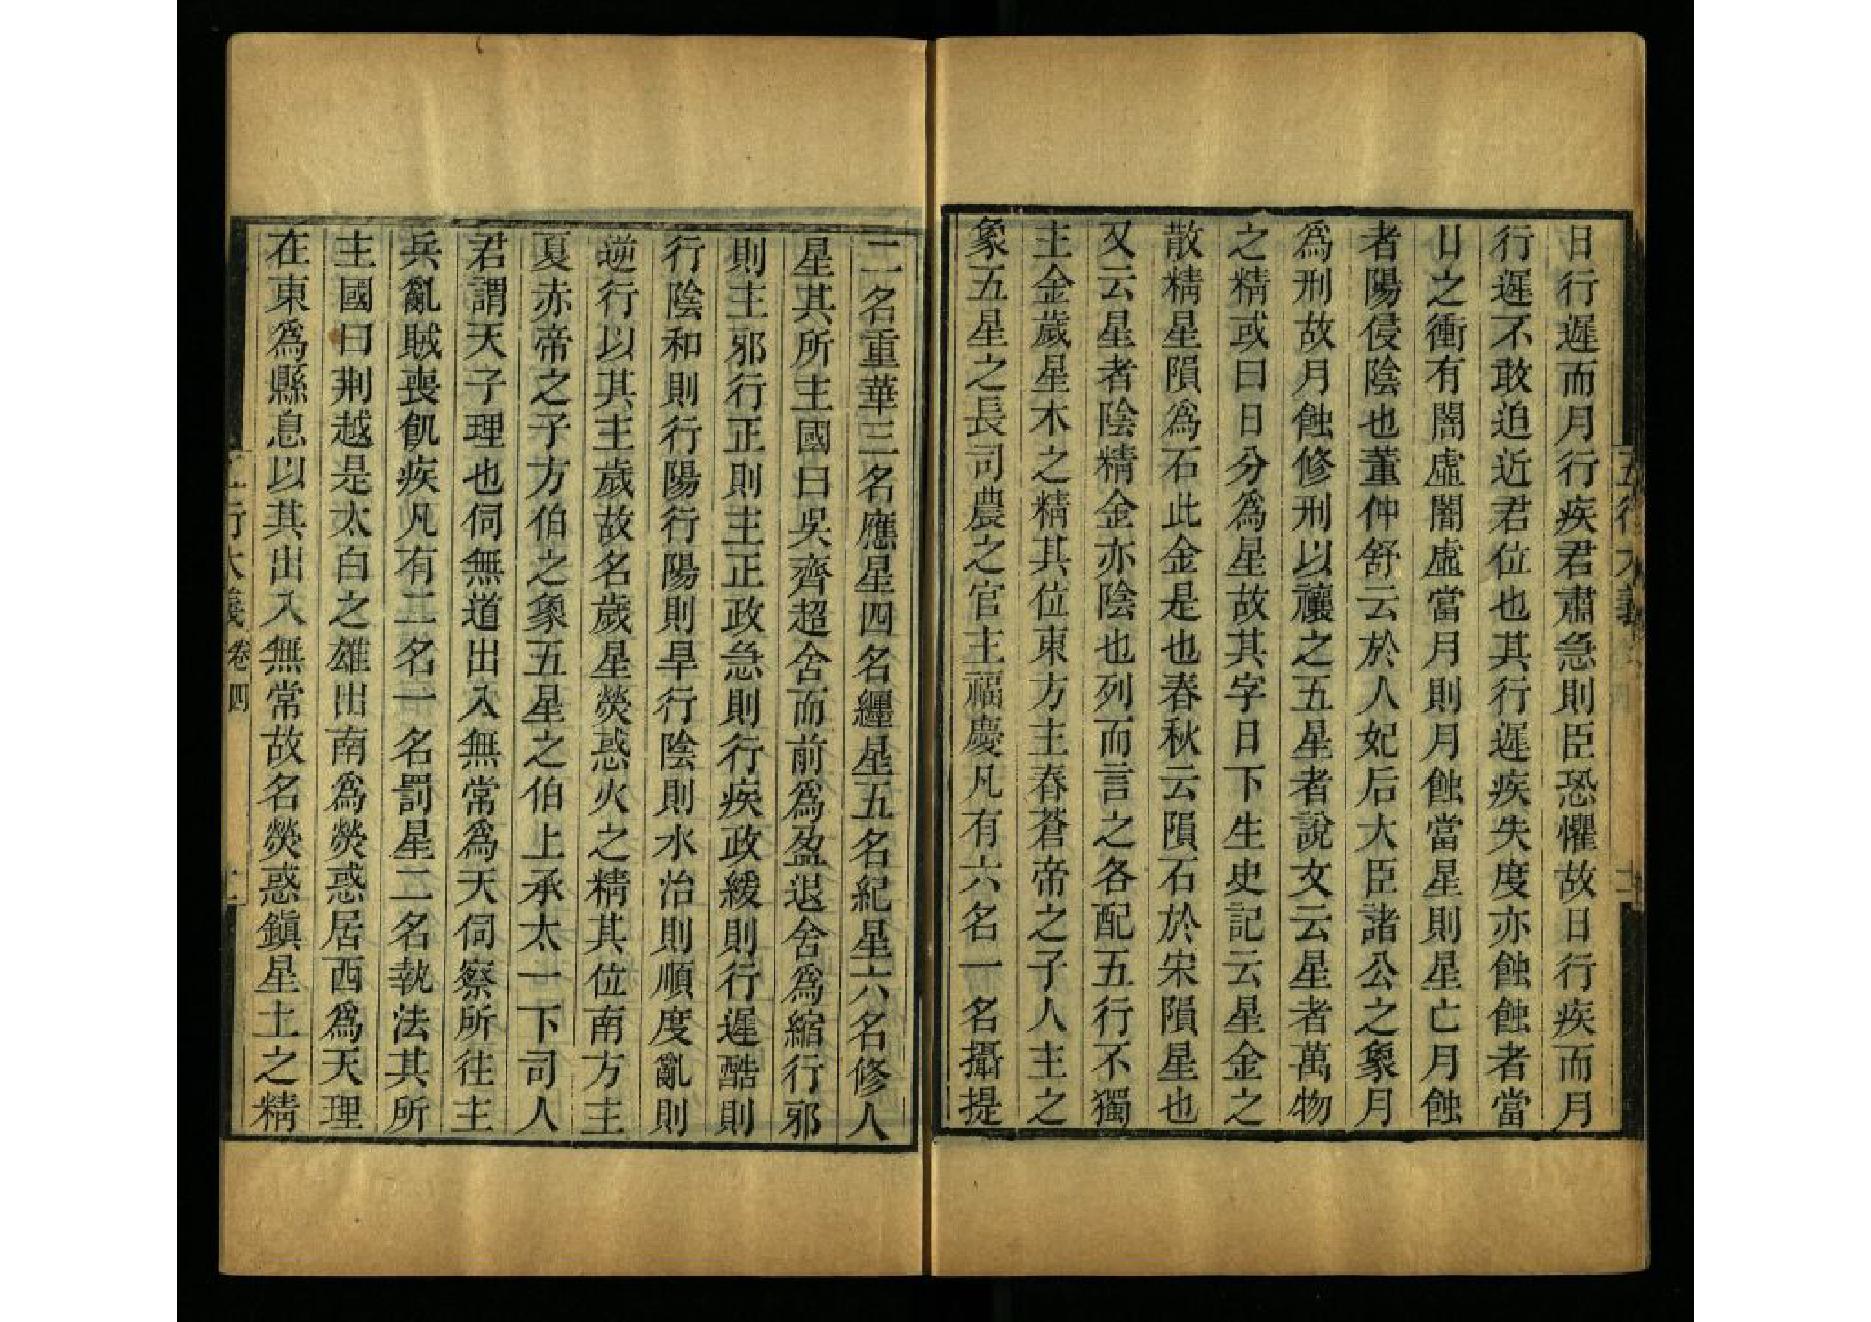 日行遲而月行疾君肅急則臣恐懼故日行疾而月
行遲不敢迫近君位也其行遲疾失度亦蝕蝕者當
日之衝有闇虛闇虛當月則月蝕當星則星亡月蝕
者陽侵陰也董仲舒云於人妃后大臣諸公之象月
爲刑故月蝕修刑以禳之五星者說文云星者萬物
之精或曰日分爲星故其字日下生史記云星金之
散精星隕爲石此金是也春秋云隕石於宋隕星也
又云星者陰精金亦陰也列而言之各配五行不獨
主金歲星木之精其位東方主春蒼帝之子人主之
象五星之長司農之官主福慶凡有六名一名攝提
二名重華三名應星四名纒星五名紀星六名修人
星其所主國曰吳齊超舍而前爲盈退舍爲縮行邪
則主邪行正則主正政急則行疾政緩則行遲酷則
行陰和則行陽行陽則旱行陰則水治則順度亂則
逆行以其主歲故名歲星熒惑火之精其位南方主
夏赤帝之子方伯之象五星之伯上承太一下司人
君謂天子理也伺無道出入無常爲天伺察所往主
兵亂賊喪飢疾凡有二名一名罰星二名執法其所
主國曰荆越是太白之雄出南爲熒惑居西爲天理
在東爲縣息以其出入無常故名熒惑鎮星土之精
五行大義 卷四